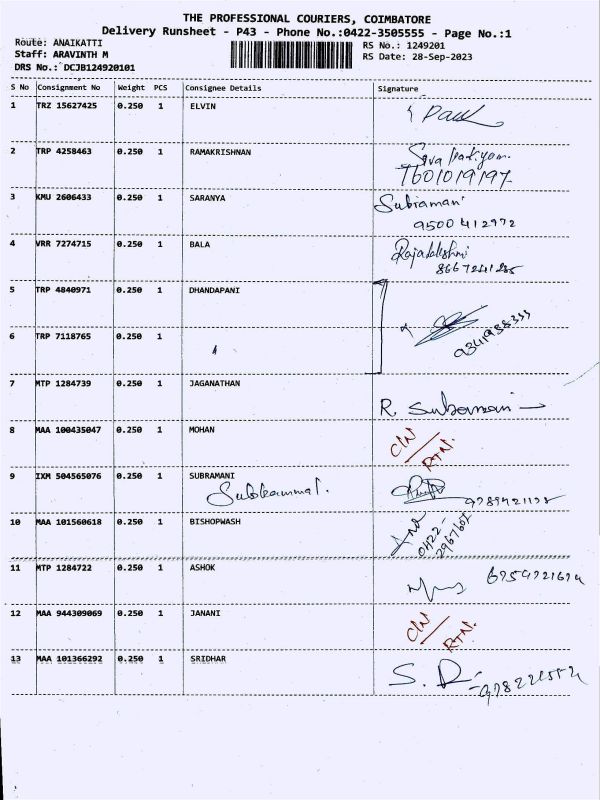 THE PROFESSIONAL COURIERS, COIMBATORE
Delivery Runsheet - P43 - Phone No.:0422-3505555 - Page No.:1
Route: ANAIKATTI
RS No.: 1249201
Staff: ARAVINTH M
RS Date: 28-Sep-2023
DRS No.: DCJB124920101
S No Consignment No Weight PCS Consignee Details Signature
1 TRZ 15627425 0.250 1 ELVIN
2 TRP 4258463 0.250 1 RAMAKRISHNAN
7601019197
3 KMU 2606433 0.250 1 SARANYA Subramani
9500412972
4 VRR 7274715 0.250 1 BALA Rajalakshmi
5 TRP 4840971 0.250 1 DHANDAPANI
6 TRP 7118765 0.250 1
7 MTP 1284739 0.250 1 JAGANATHAN
8 MAA 100435047 0.250 1 MOHAN C/N
RTN.
9 IXM 504565076 0.250 1 SUBRAMANI
10 MAA 101560618 0.250 1 BISHOPWASH
0422-
2967607
11 MTP 1284722 0.250 1 ASHOK
12 MAA 944309069 0.250 1 JANANI C/N
RTN.
13 MAA 101366292 0.250 1 SRIDHAR